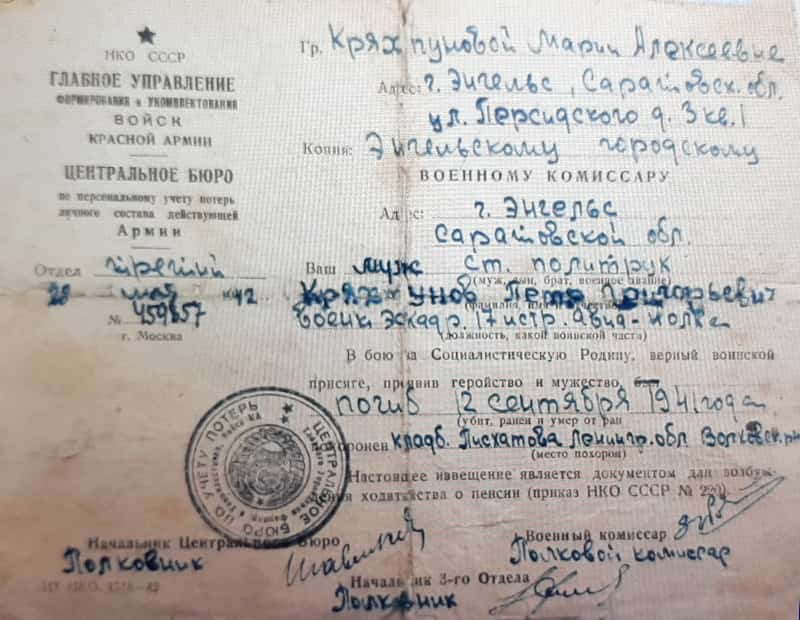 НКО СССР
ГЛАВНОЕ УПРАВЛЕНИЕ
ФОРМИРОВАНИЯ и УКОМПЛЕКТОВАНИЯ
ВОЙСК
КРАСНОЙ АРМИИ
ЦЕНТРАЛЬНОЕ БЮРО
по персональному учету потерь
личного состава действующей
Армии
Отдел третий
28 мая 42
№ 459857
г. Москва
Гр. Кряхтуновой Марии Алексеевне
Адрес: г. Энгельс, Саратовск. обл.
ул. Персидского д. 3 кв. 1
Копия: Энгельскому городскому
ВОЕННОМУ КОМИССАРУ
Адрес: г. Энгельс
Саратовской обл.
Ваш муж ст. политрук
(муж, сын, брат, военное звание)
Кряхтунов Петр Григорьевич
военк. эскадр. 17 истр. Авиа-полка
(должность, какой воинской части)
В бою за Социалистическую Родину, верный воинской
присяге, проявив геройство и мужество,
погиб 12 сентября 1941 года
(убит, ранен и умер от ран)
Похоронен кладб. Пискатова Ленингр. обл Волховск. р-н
(место похорон)
Настоящее извещение является документом для возбуж-
дения ходатайства о пенсии (приказ НКО СССР № 220).
ЦЕНТРАЛЬНОЕ БЮРО ПО УЧЕТУ ПОТЕРЬ
Начальник Центрального Бюро
Полковник
Военный комиссар
Полковой комиссар
Начальник 3-го Отдела
Полковник